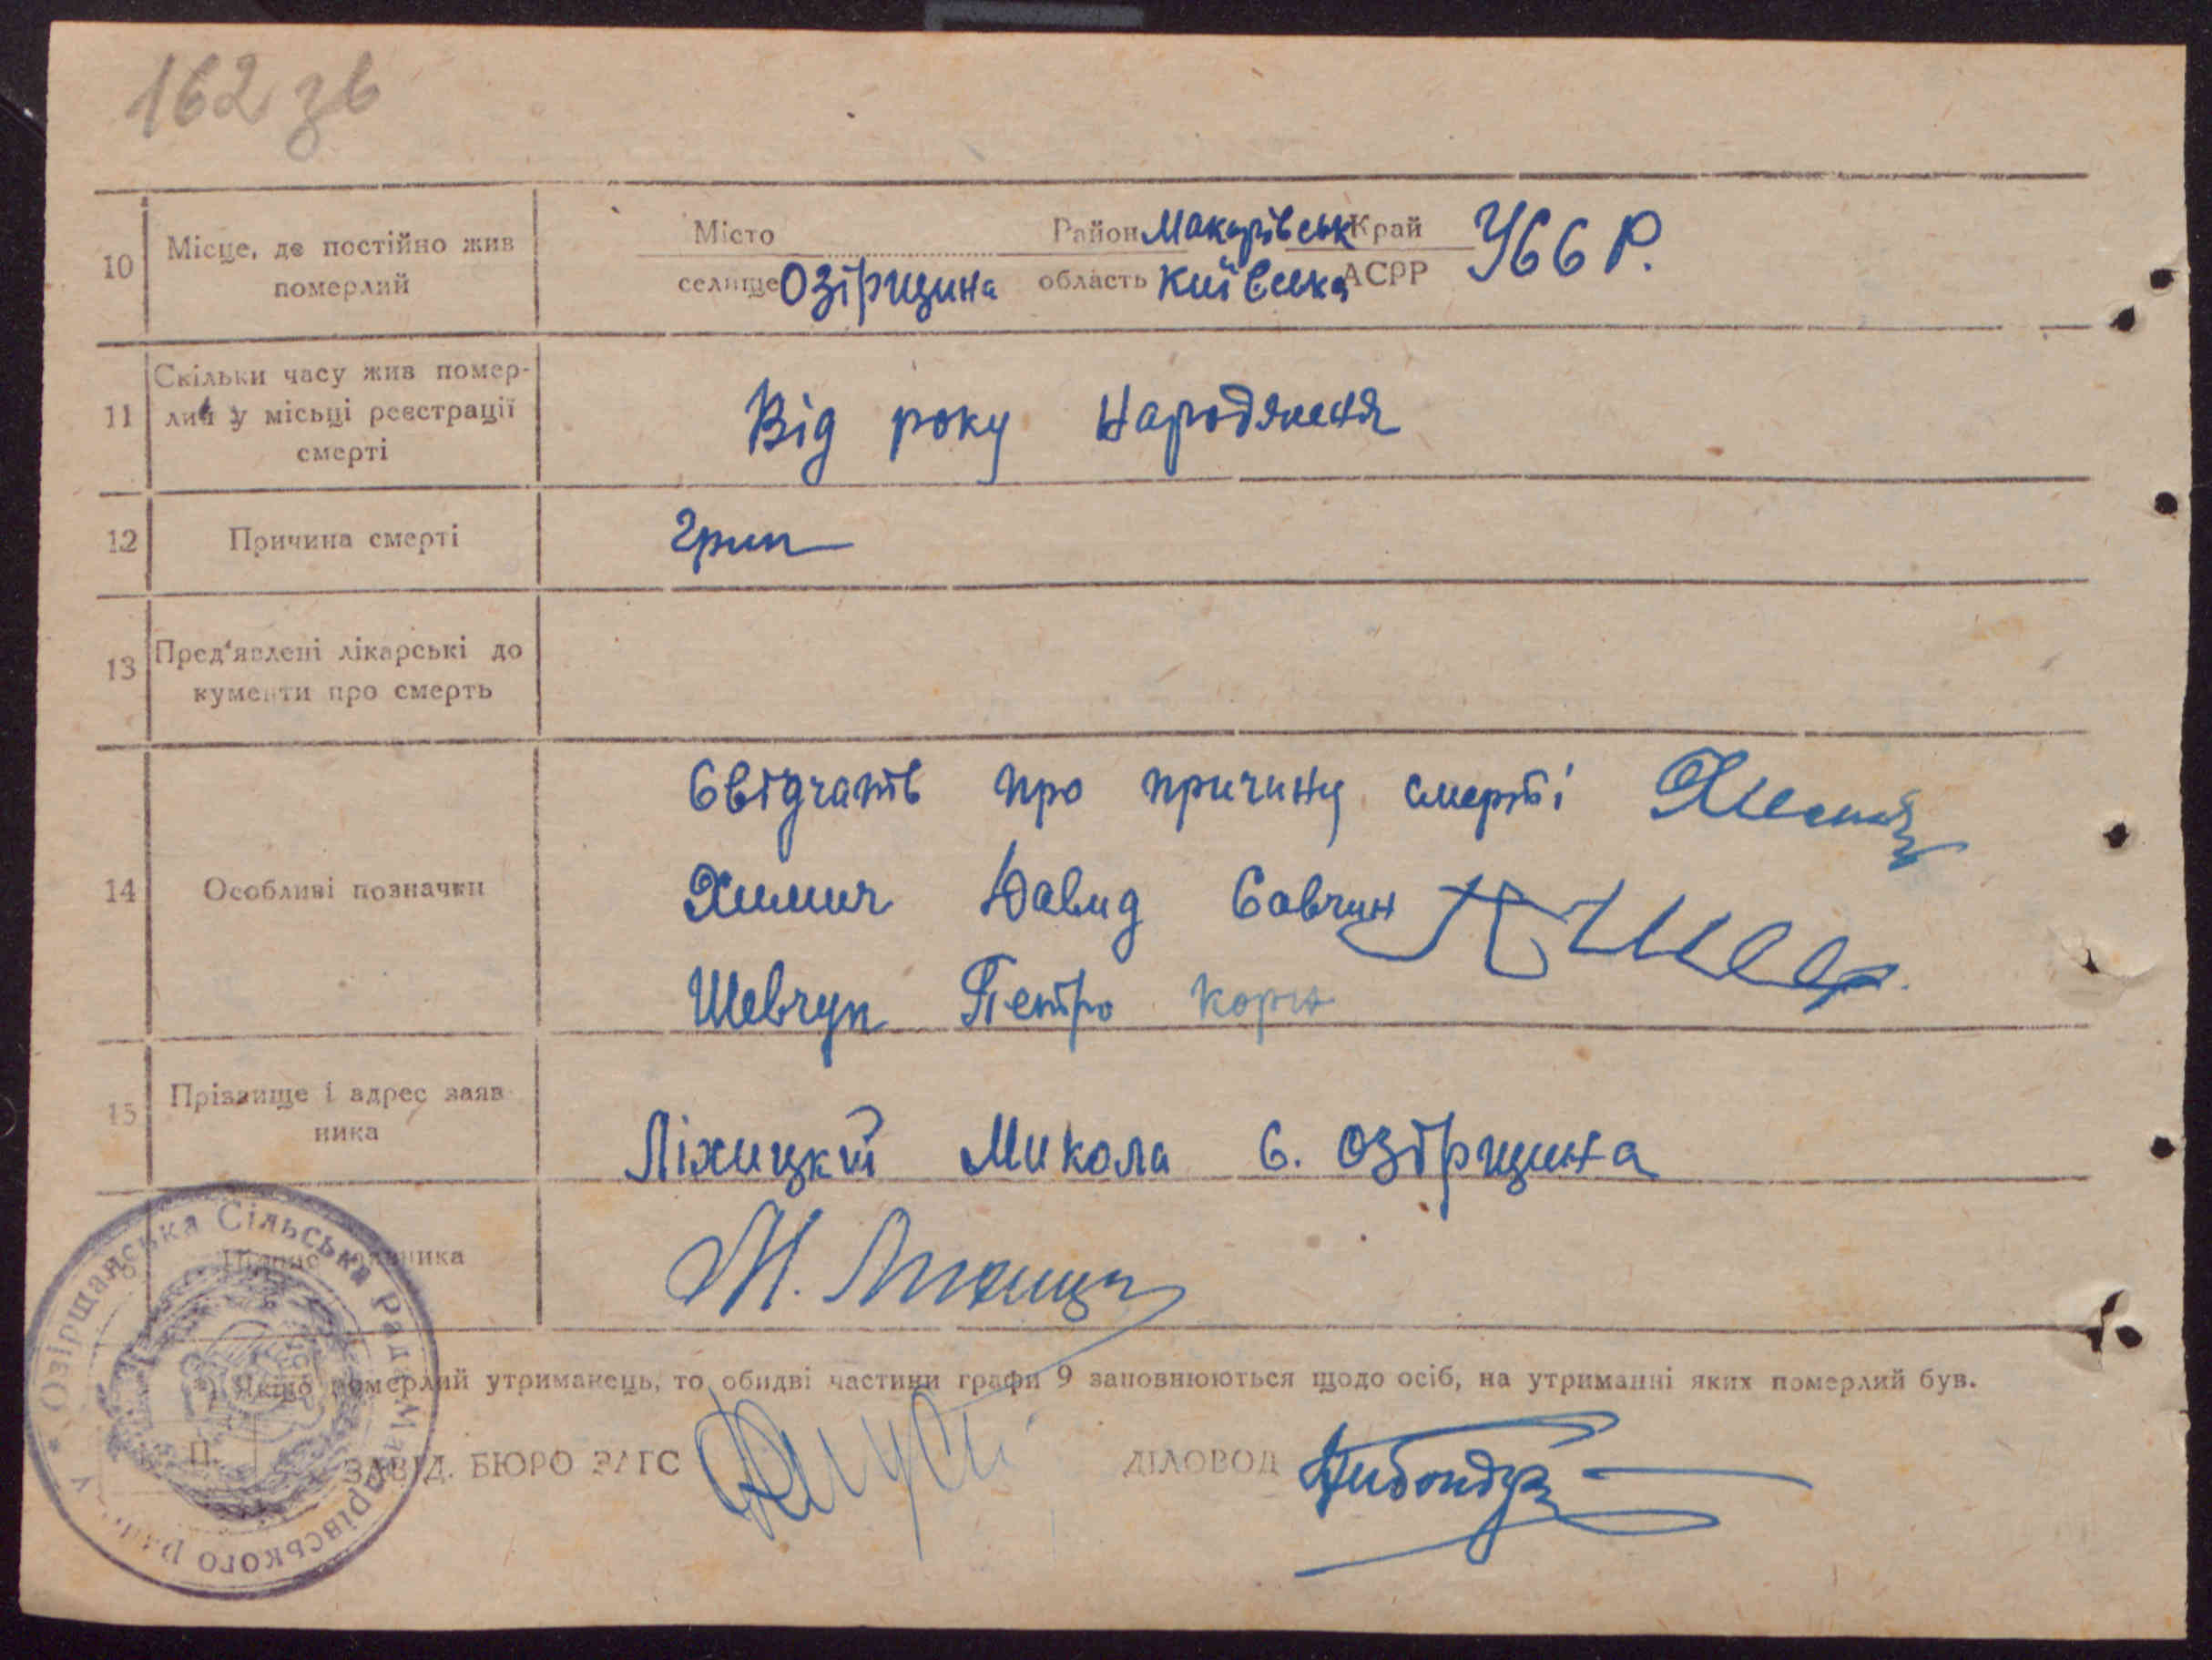 162 зв
10
Місце, де постійно жив
померлий
Місто Район Макарівськ Край УССР.
селище Озірщина область Київська АСРР
11
Скільки часу жив помер-
лий у місьці реєстрації
смерті
Від року народженя
12
Причина смерті
грип
13
Пред'явлені лікарські до
кументи про смерть
14
Особливі позначки
Свідчать про причину смерті
Химич Давид Савчин
Шевчук Петро Корн
15
Прізвище і адрес заяв
ника
Ліхицкий Микола с. Озірщина
Підпис заявника
М. Ліхицк
Якщо померлий утриманець, то обидві частини графи 9 заповнюються щодо осіб, на утриманні яких померлий був.
П.
ЗАВІД. БЮРО ЗАГС ДІЛОВОД
Озірщанська Сільська Рада Макарівського